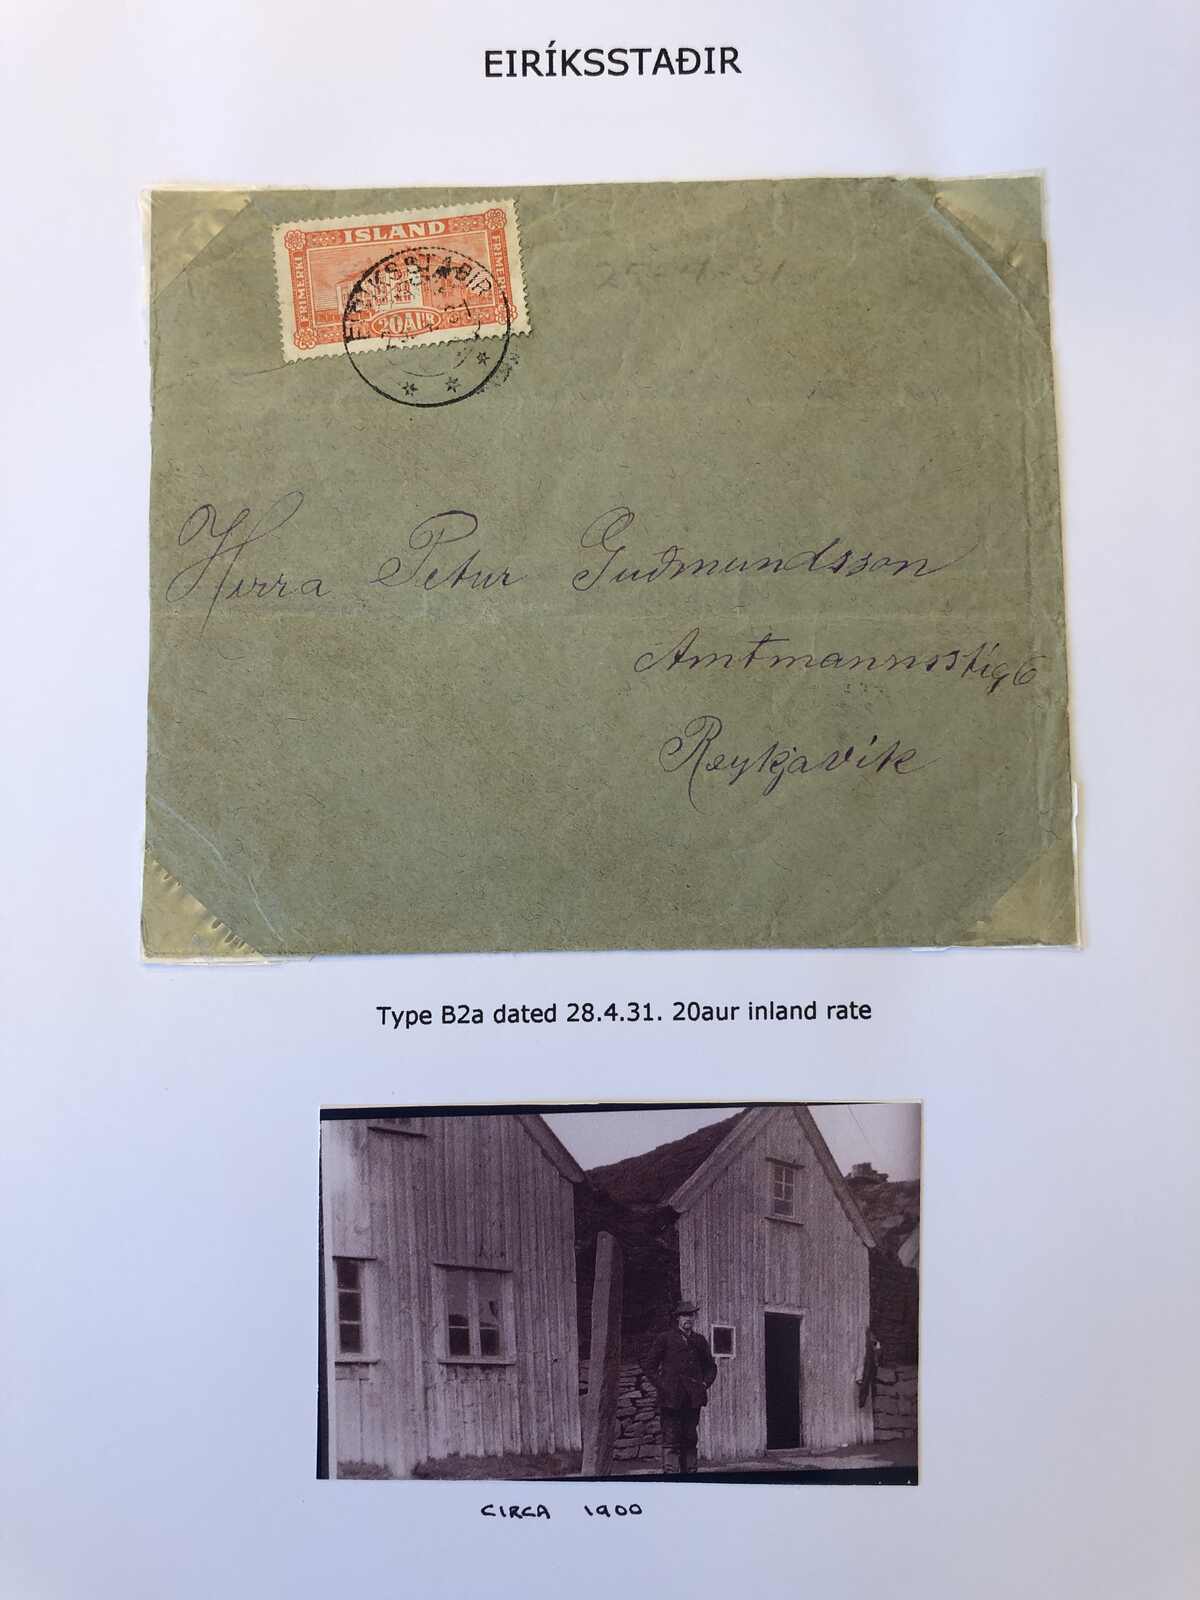 EIRÍKSSTAÐIR
ÍSLAND
FRÍMERKI
FRÍMERKI
20AUR
EIRÍKSSTAÐIR
Herra Petur Guðmundsson
Amtmannsstíg 6
Reykjavík
Type B2a dated 28.4.31. 20aur inland rate
CIRCA 1900